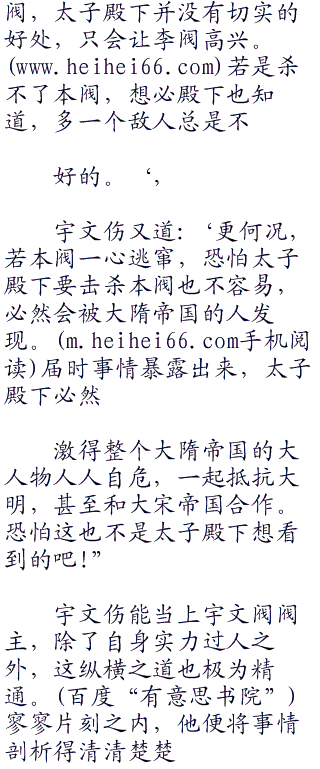 阀，太子殿下并没有切实的
好处，只会让李阀高兴。
(www.heihei66.com)若是杀
不了本阀，想必殿下也知
道，多一个敌人总是不
好的。‘，
宇文伤又道：‘更何况，
若本阀一心逃窜，恐怕太子
殿下要击杀本阀也不容易，
必然会被大隋帝国的人发
现。(m.heihei66.com手机阅
读)届时事情暴露出来，太子
殿下必然
激得整个大隋帝国的大
人物人人自危，一起抵抗大
明，甚至和大宋帝国合作。
恐怕这也不是太子殿下想看
到的吧!”
宇文伤能当上宇文阀阀
主，除了自身实力过人之
外，这纵横之道也极为精
通。(百度“有意思书院”)
寥寥片刻之内，他便将事情
剖析得清清楚楚